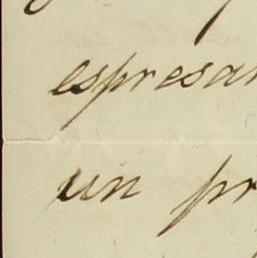 espresar
un pr